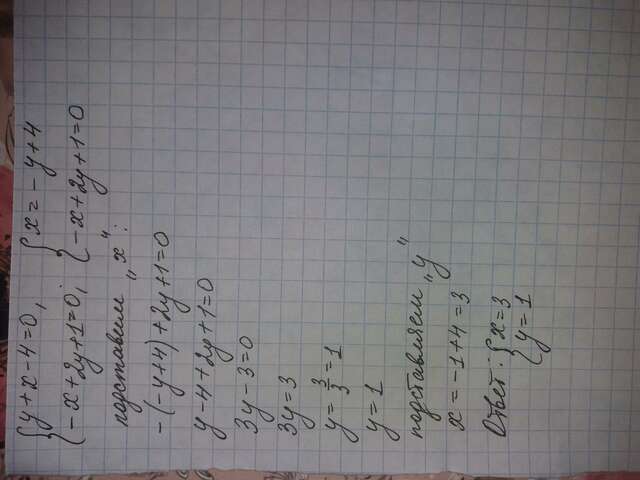 {y+x-4=0, {x=-y+4
{-x+2y+1=0; {-x+2y+1=0
подставим "x":
-(-y+4)+2y+1=0
y-4+2y+1=0
3y-3=0
3y=3
y=3/3=1
y=1
подставляем "y"
x=-1+4=3
Ответ: {x=3
{y=1